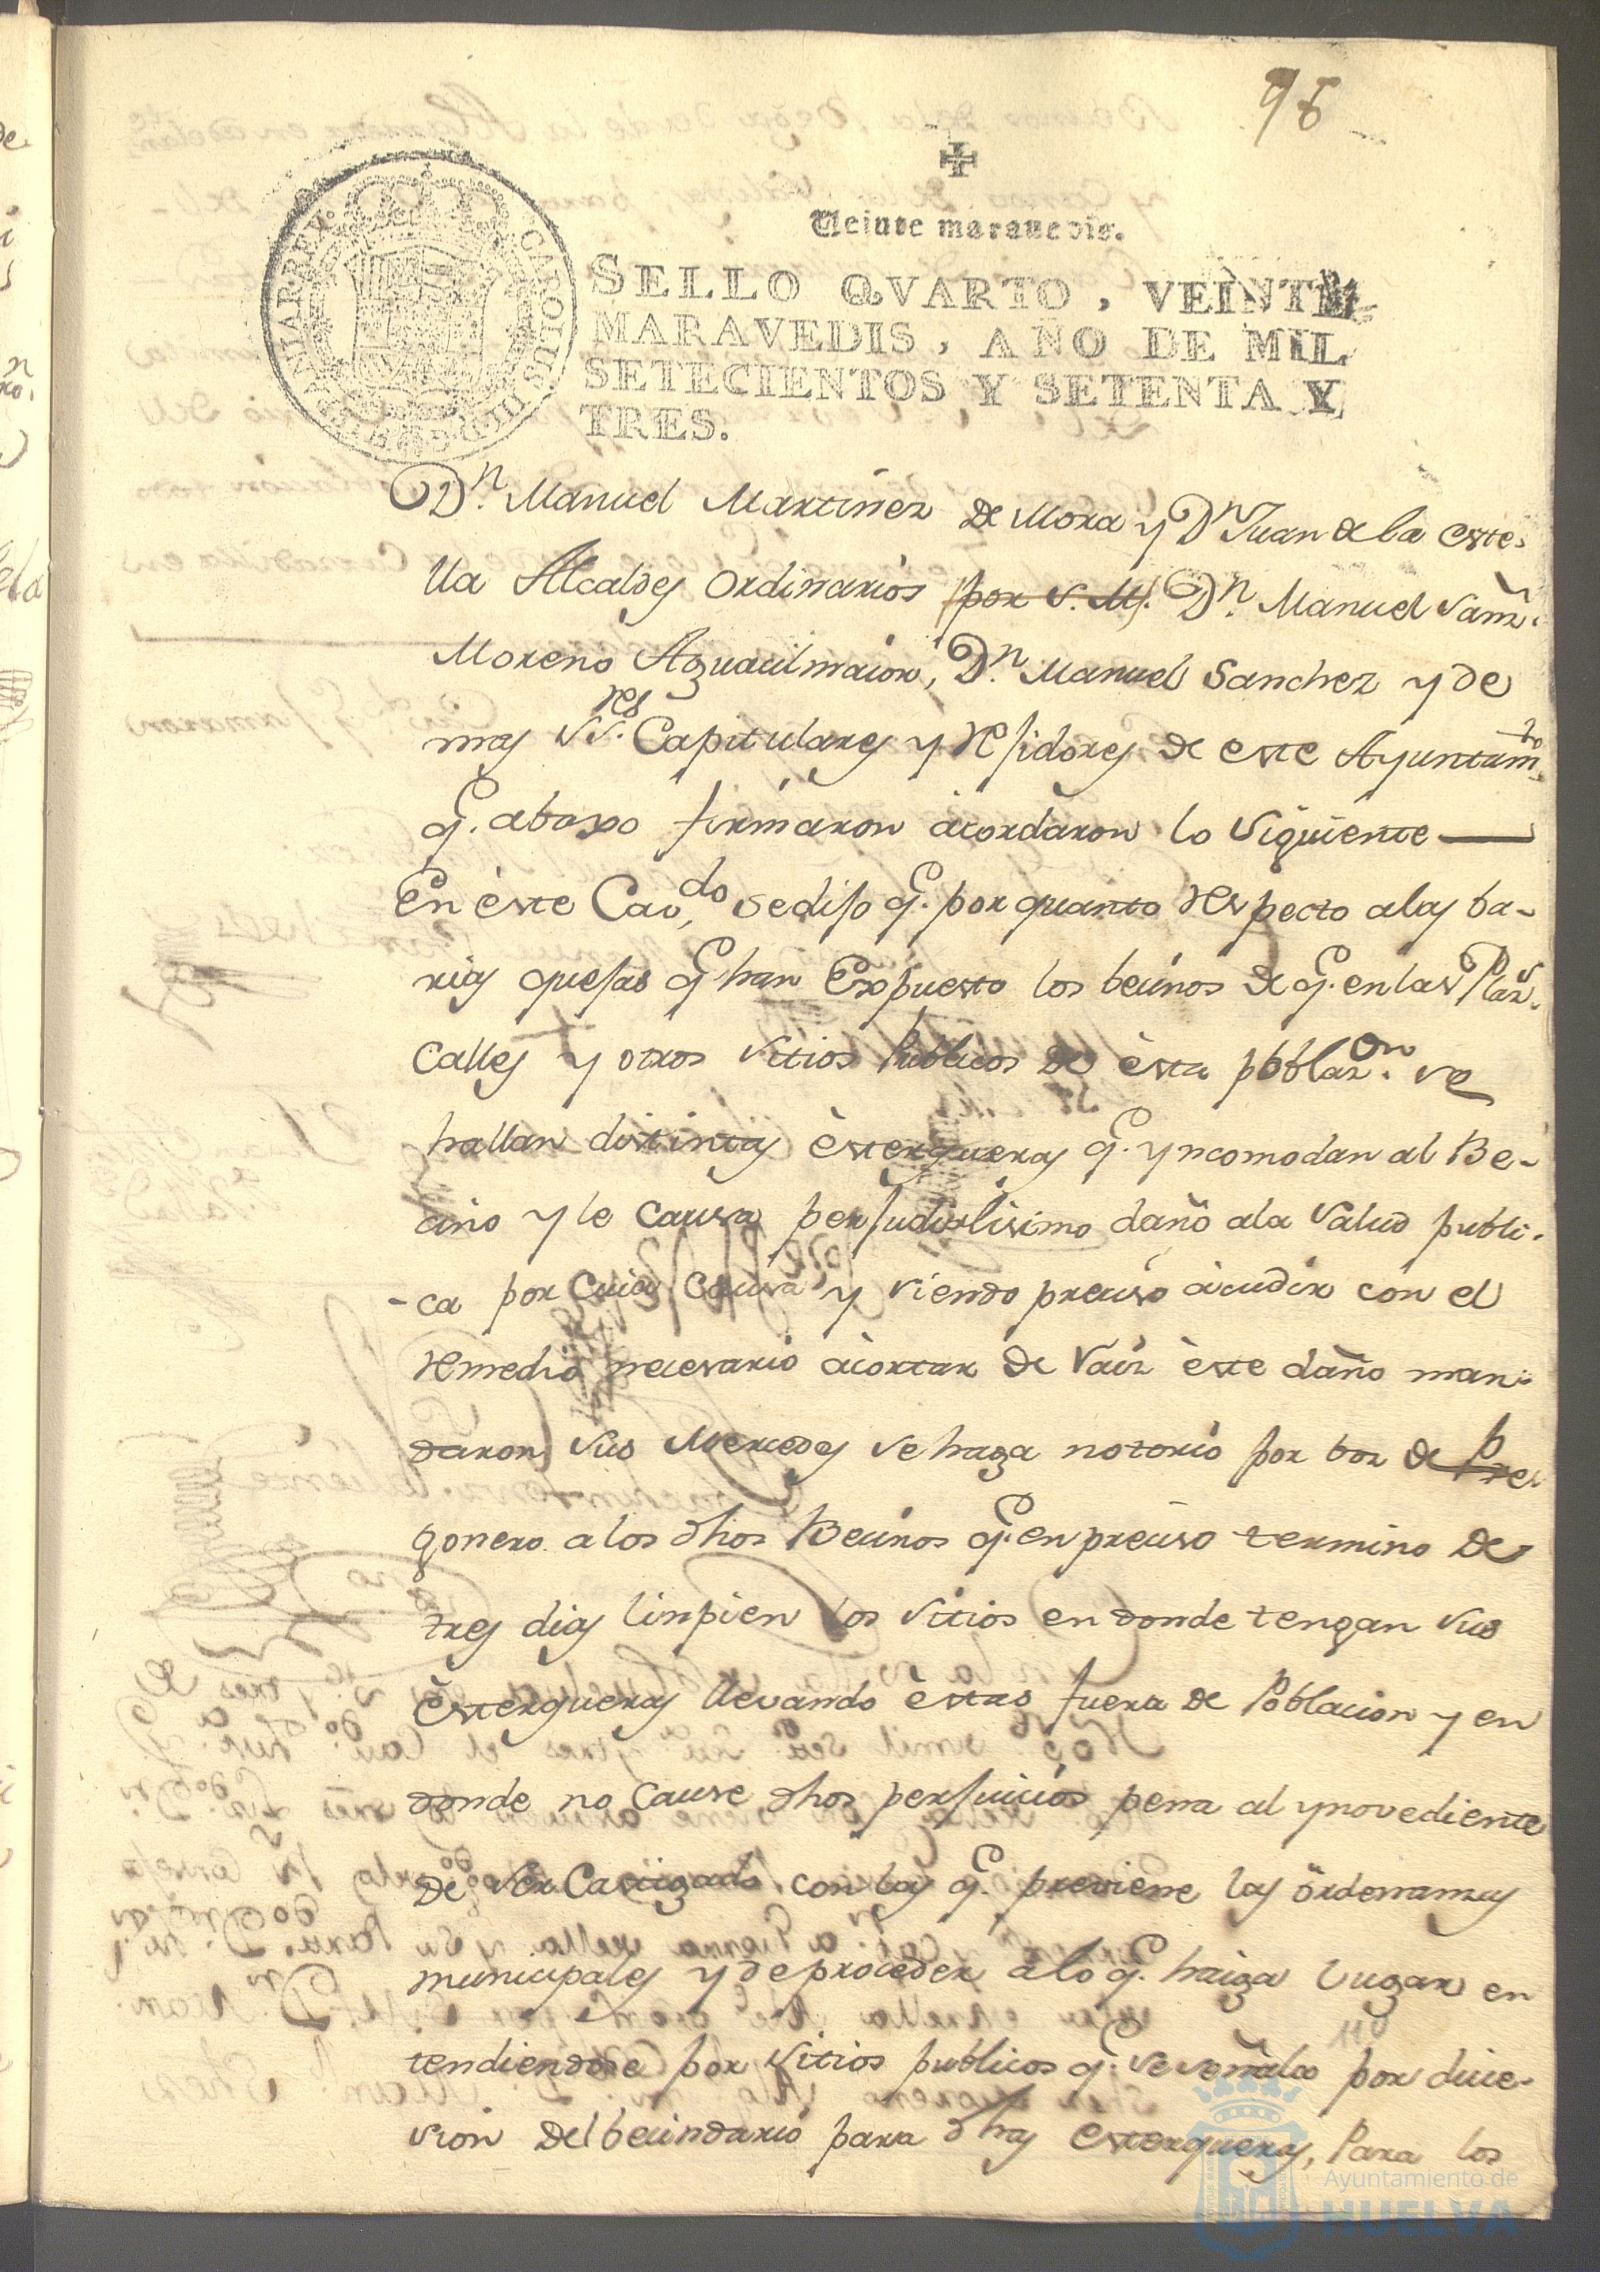 98
Veinte maravedis.
SELLO QVARTO, VEINTE
MARAVEDIS, AÑO DE MIL
SETECIENTOS Y SETENTA Y
TRES.
Dn. Manuel Martinez de Mora y Dn Juan de la este-
lla Alcaldes Ordinarios por S. M. Dn. Manuel
Moreno Alguacil maior, Dn. Manuel Sanchez y de
mas SS.res Capitulares y Rejidores de este Ayuntamto
q. abaxo firmaron acordaron lo siguiente
En este Cavdo, se dijo q. por quanto respecto a las ba-
rias quejas q han Expuesto los becinos de q. en las Plazs.
Calles y otros sitios Publicos de esta poblazon. se
hallan distintas estergueras q. yncomodan al Be-
cino y le causa perjudialisimo daño a la salud publi-
-ca por cuia causa y siendo preciso acudir con el
remedio necesario acortar de raiz este daño man-
daron sus Mercedes se haga notorio por boz de Pre-
gonero a los dhos Becinos q. en preciso termino de
tres dias linpien los sitios en donde tengan sus
estergueras llevando estas fuera de Poblacion y en
donde no cause dhos perjuicios pena al ynovediente
de ser Castigado con las q. previene las ordenanzas
municipales y de proceder a lo q. haiga lugar en
tendiendose por sitios publicos q. se señala por direc-
sion del becindario para dhas estergueras, Para los
110
Ayuntamiento de
HUELVA